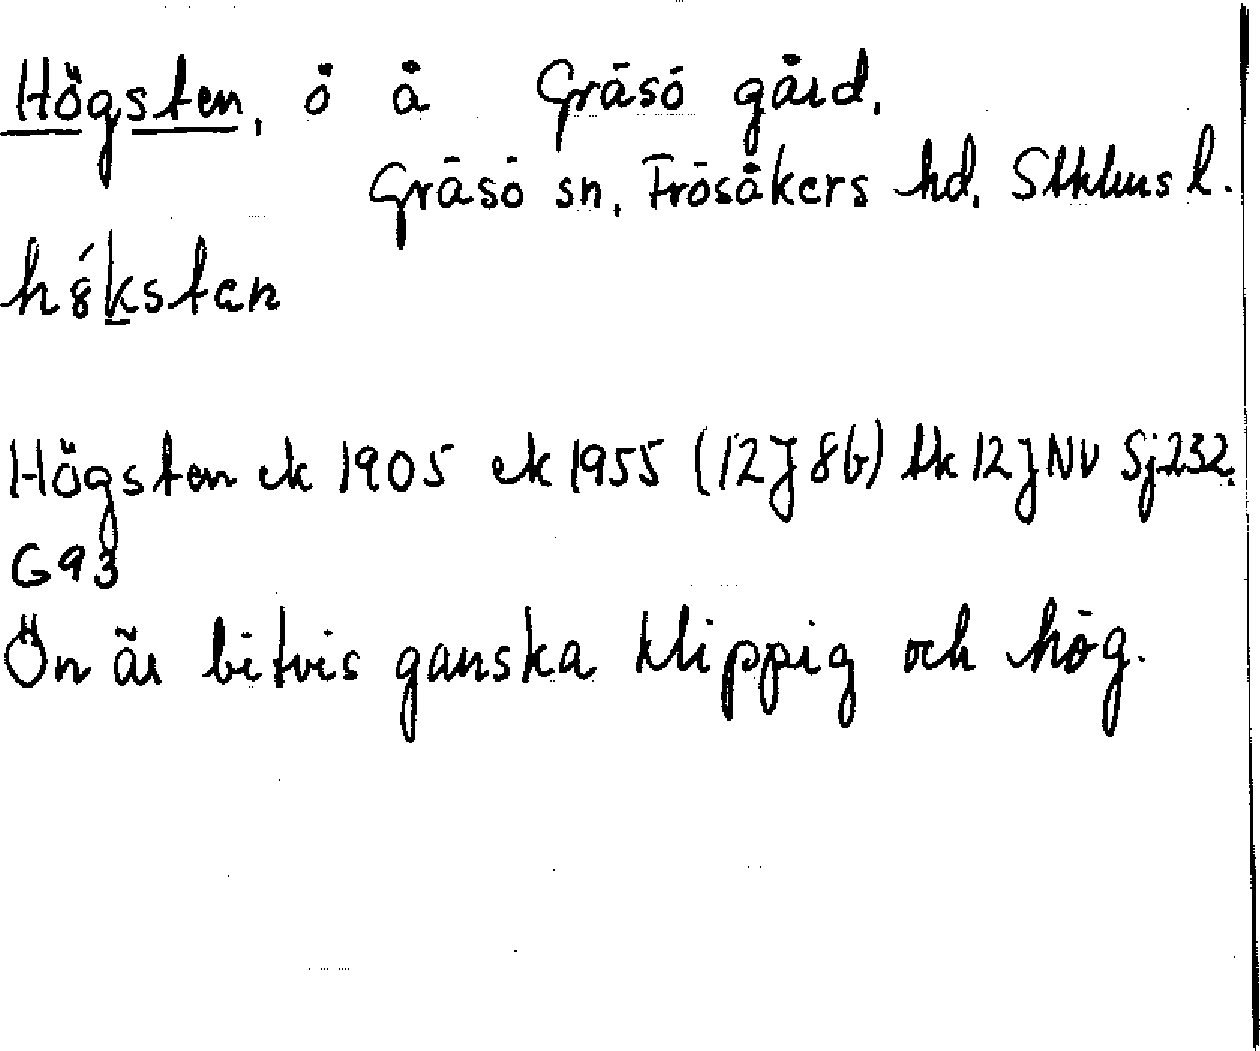 Högsten, ö å Gräsö gård,
Gräsö sn, Frösåkers hd, Stklms l.
hö́ksten
Högsten ek 1905 ek 1955 (12J 8b) tk 12J NV Sj 232.
G93
Ön är bitvis ganska klippig och hög.